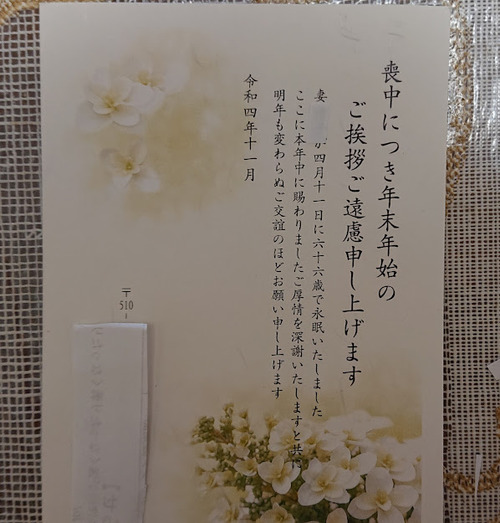 喪中につき年末年始の
ご挨拶ご遠慮申し上げます
妻 が四月十一日に六十六歳で永眠いたしました
ここに本年中に賜わりましたご厚情を深謝いたしますと共に
明年も変わらぬご交誼のほどお願い申し上げます
令和四年十一月
〒510-